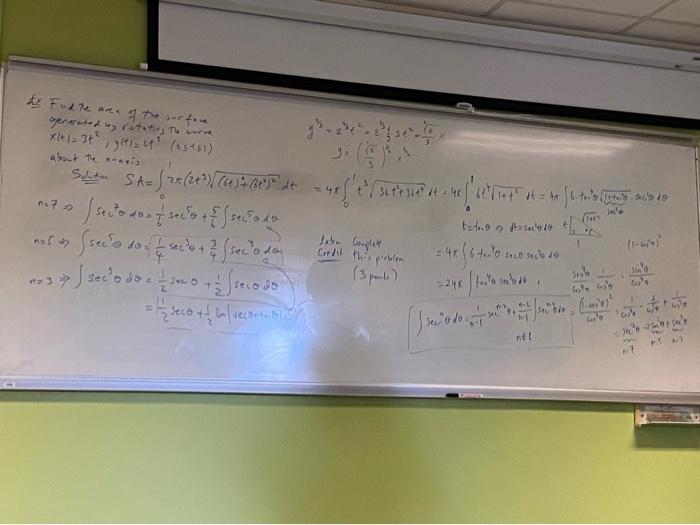 Ex Find the area of the surface
generated by rotating the curve
x(t)=3t², y(t)=2t³ (0≤t≤1)
about the x-axis.
Solution SA = ∫₀¹ 2π(2t³)√((6t)²+(6t²)²) dt = 4π ∫₀¹ t³ √(36t²+36t⁴) dt = 4π ∫₀¹ 6t⁴ √(1+t²) dt = 4π ∫ 6·tan⁴θ √(1+tan²θ) · sec²θ dθ
t=tanθ ⇒ dt=sec²θ dθ
= 4π ∫ 6 tan⁴θ · secθ sec²θ dθ
= 24π ∫ tan⁴θ sec³θ dθ
n=7 ⇒ ∫ sec⁷θ dθ = 1/6 sec⁵θ + 5/6 ∫ sec⁵θ dθ
n=5 ⇒ ∫ sec⁵θ dθ = 1/4 sec³θ + 3/4 ∫ sec³θ dθ
n=3 ⇒ ∫ sec³θ dθ = 1/2 secθ + 1/2 ∫ secθ dθ
= 1/2 secθ + 1/2 ln|secθ+tanθ|
Extra Complete
Credit this problem
(3 points)
∫ secⁿθ dθ = 1/(n-1) secⁿ⁻²θ + (n-2)/(n-1) ∫ secⁿ⁻²θ dθ
n≠1
(1-cos²θ)²
sin⁴θ/cos⁴θ · 1/cos³θ = sin⁴θ/cos⁷θ
= (1-cos²θ)²/cos⁷θ = 1/cos⁷θ - 2/cos⁵θ + 1/cos³θ
= sec⁷θ - 2sec⁵θ + sec³θ
n=7 n=5 n=3